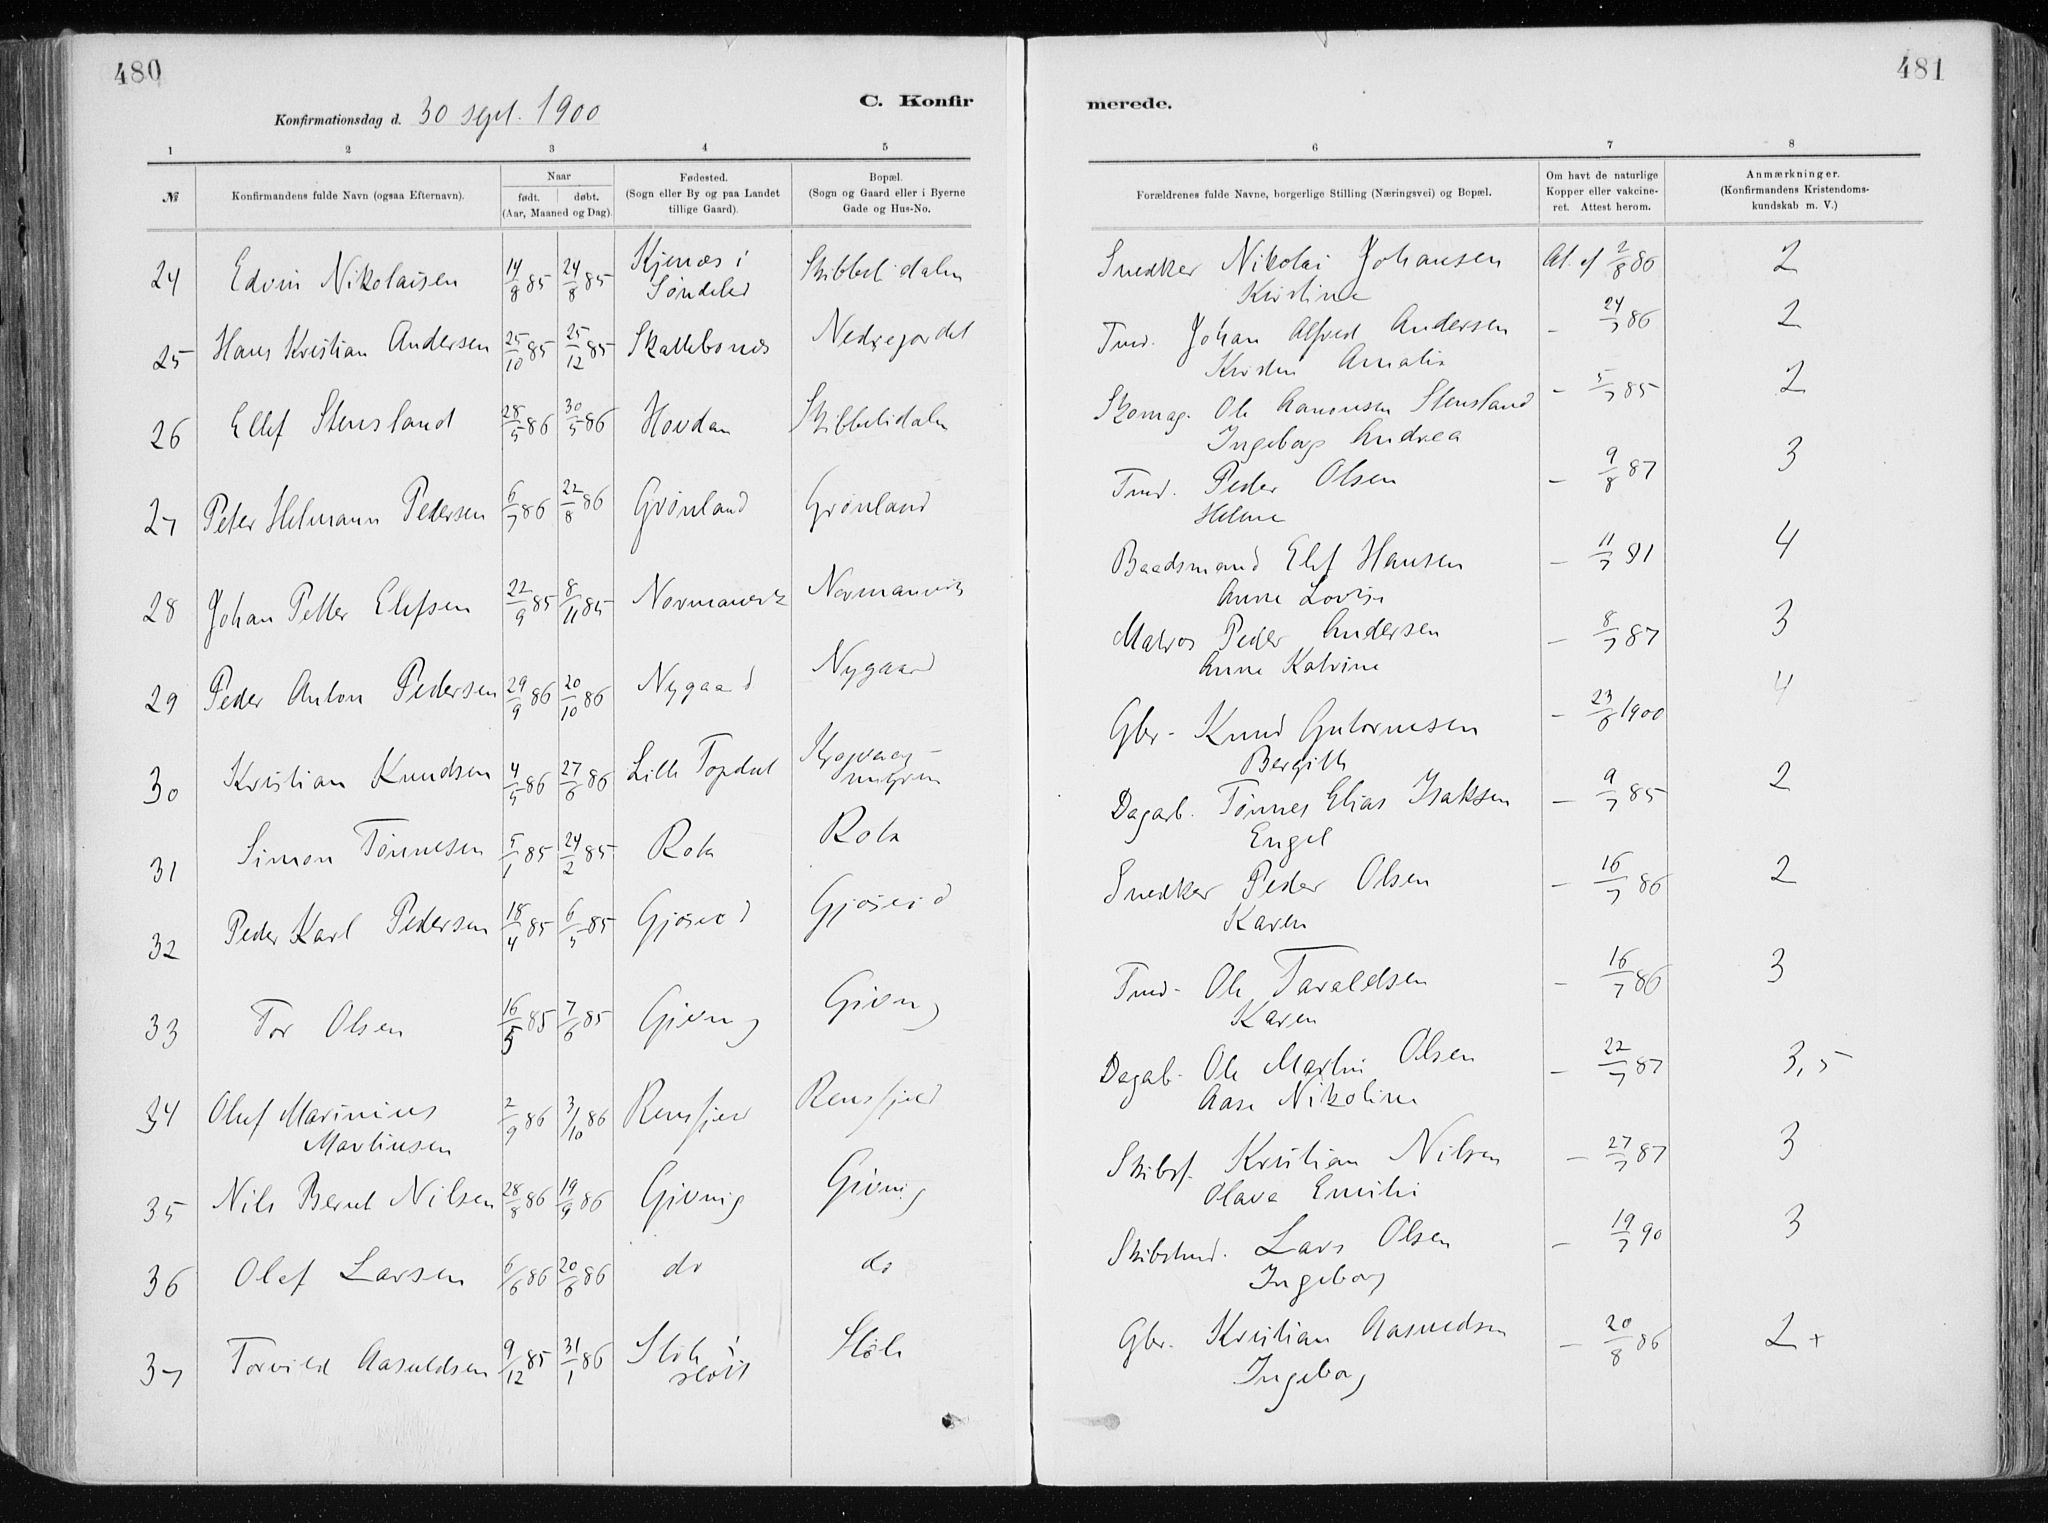 480
481
C. Konfirmerede.
Konfirmationsdag d. 30 sept. 1900
1 2 3 4 5 6 7 8
№
Konfirmandens fulde Navn (ogsaa Efternavn).
Naar
født. døbt.
(Aar, Maaned og Dag).
Fødested.
(Sogn eller By og paa Landet
tillige Gaard).
Bopæl.
(Sogn og Gaard eller i Byerne
Gade og Hus-No.
Forældrenes fulde Navne, borgerlige Stilling (Næringsvei) og Bopæl.
Om havt de naturlige
Kopper eller vakcine-
ret. Attest herom.
Anmærkninger.
(Konfirmandens Kristendoms-
kundskab m. V.)
24 Edvin Nikolaisen 14/8 85 24/8 85 Kjenæs i Søndeled Skibbelidalen Snedker Nikolai Johansen At. af 2/8 86 2
Kristine
25 Hans Kristian Andersen 25/10 85 25/12 85 Nedregardet Tmd. Johan Alfred Andersen - 24/7 86 2
Amalie
26 Ellef Stensland 28/5 86 30/5 86 Hovdan Skibbelidalen Skomag. Ole Aanonsen Stensland - 5/7 85 2
Ingeborg Andrea
27 Peter Helmann Pedersen 6/7 86 22/8 86 Grønland Grønland Tmd. Peder Olsen - 9/8 87 3
Helene
28 Johan Petter Elefsen 22/9 85 8/11 85 Normansvik Normansvik Baadsmand Elef Hansen - 11/7 91 4
Anne Lovise
29 Peder Anton Pedersen 29/9 86 20/10 86 Nygaard Nygaard Matros Peder Andersen - 8/7 87 3
Anne Katrine
30 Kristian Knudsen 4/5 86 27/6 86 Lille Topdal Gbr. Knud Gutormsen - 23/6 1900 4
Bergithe
31 Simon Tønnesen 5/1 85 24/2 85 Dagarb. Tønnes Elias Isaksen - 9/7 85 2
Engel
32 Peder Karl Pedersen 18/4 85 6/5 85 Gjøseid Gjøseid Snedker Peder Olsen - 16/7 86 2
Karen
33 Tor Olsen 16/5 85 7/6 85 Givning Givning Tmd. Ole Taraldsen - 16/7 86 3
Karen
34 Oluf Marinius 2/9 86 3/10 86 Rensfjeld Rensfjeld Dagarb. Ole Martin Olsen - 22/7 87 3,5
Martinsen Aase Nikoline
35 Nils Bernt Nilsen 28/8 86 19/9 86 Givning Givning Skibsf. Kristian Nilsen - 27/7 87 3
Olava Emilie
36 Olef Larsen 6/6 86 20/6 86 do do Lars Olsen - 19/7 90 3
Ingeborg
37 Torvild Aasuldsen 9/12 85 31/1 86 Støle Gbr. Kristian - 20/8 86 2+
Ingeborg